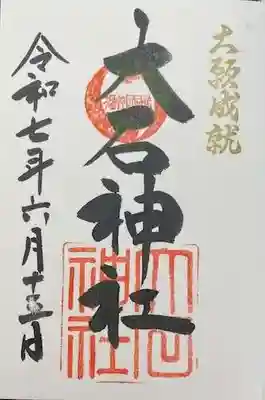 大願成就
大石神社
令和七年六月十三日
大石神社